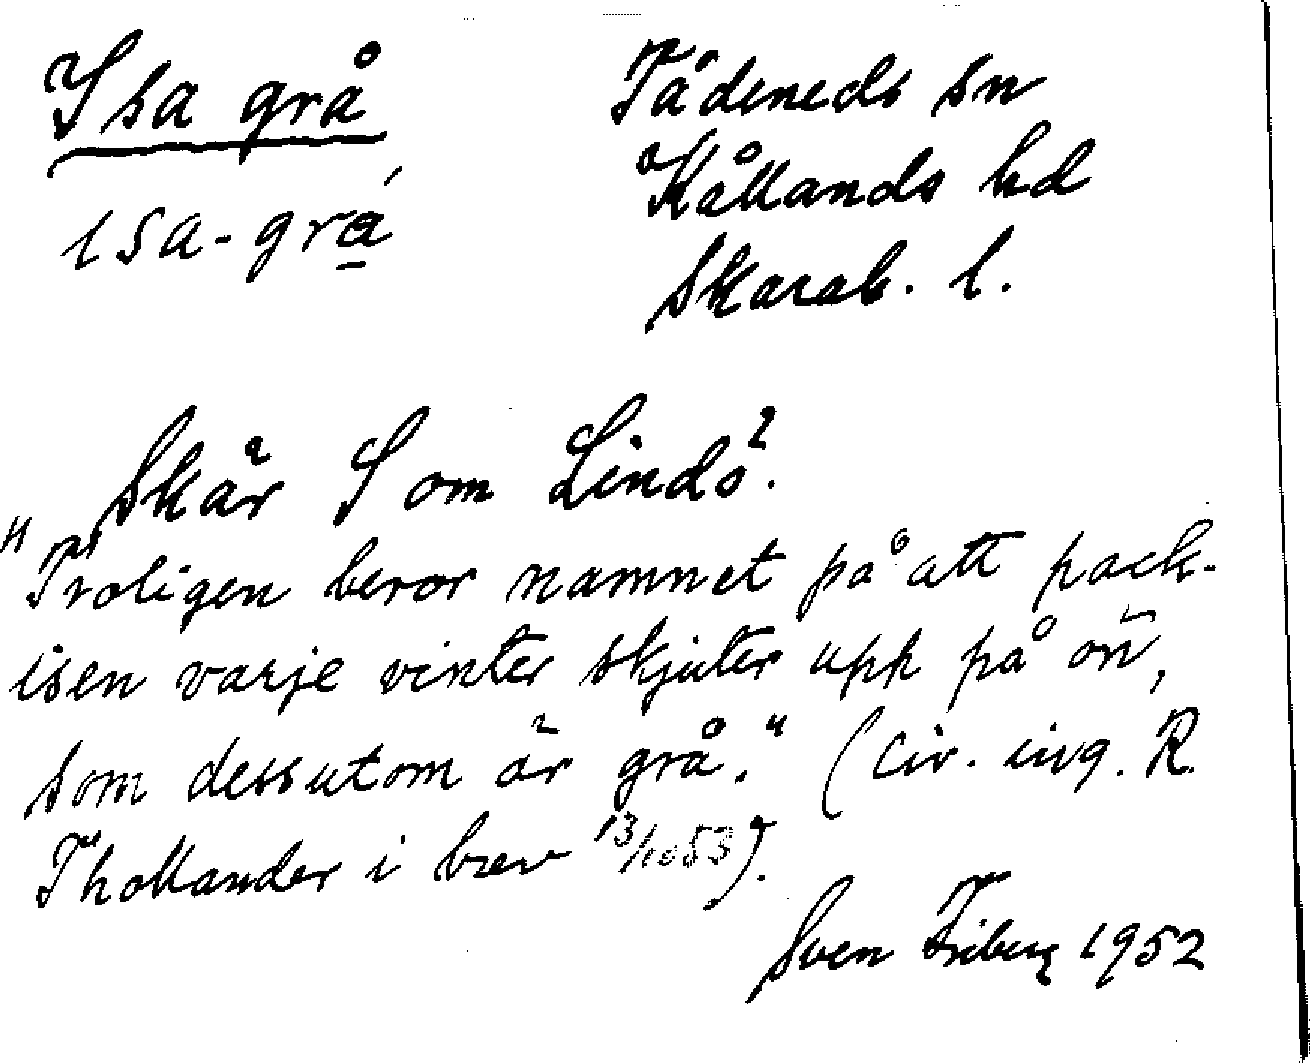 Isa grå
Tådeneds sn
Kållands hd
Skarab. l.
ısa-grá̱
Skär S om Lindö.
"Troligen beror namnet på att pack-
isen varje vinter skjuter upp på ön,
som dessutom är grå." (Civ. ing. R.
Thollander i brev 13/10 53).
Sven Friberg 1952